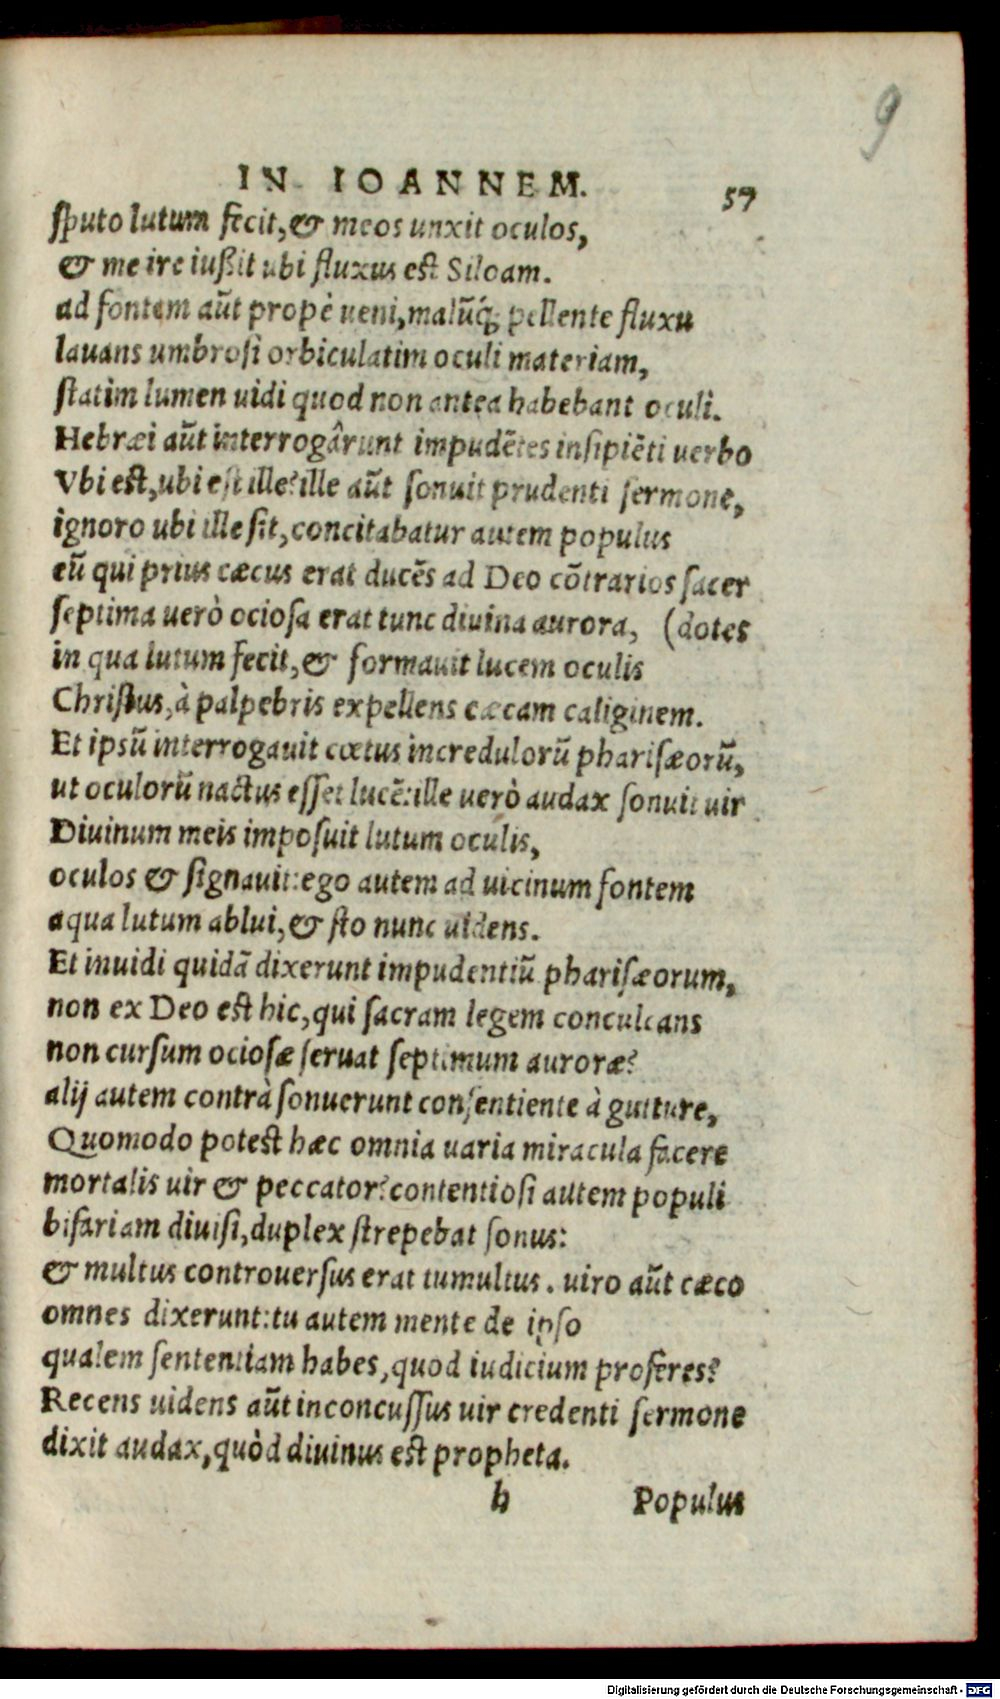 9
IN IOANNEM. 57
ſputo lutum fecit, & meos unxit oculos,
& me ire iußit ubi fluxus est Siloam.
ad fontem aũt propè ueni, malũq́; pellente fluxu
lauans umbroſi orbiculatim oculi materiam,
ſtatim lumen uidi quod non antea habebant oculi.
Hebræi aũt interrogârunt impudẽtes inſipiẽti uerbo
Vbi est, ubi eſt ille? ille aũt ſonuit prudenti ſermone,
ignoro ubi ille ſit, concitabatur autem populus
eũ qui prius cæcus erat ducẽs ad Deo cõtrarios ſacer
ſeptima uerò ocioſa erat tunc diuina aurora, (dotes
in qua lutum fecit, & formauit lucem oculis
Chriſtus, à palpebris expellens cæcam caliginem.
Et ipsũ interrogauit cœtus incredulorũ phariſæorũ,
ut oculorũ nactus eſſet lucẽ: ille uerò audax ſonuit uir
Diuinum meis impoſuit lutum oculis,
oculos & ſignauit: ego autem ad uicinum fontem
aqua lutum ablui, & ſto nunc uidens.
Et inuidi quidã dixerunt impudentiũ phariſæorum,
non ex Deo est hic, qui ſacram legem conculcans
non curſum ocioſæ ſeruat ſeptimum auroræ?
alij autem contrà ſonuerunt conſentiente à gutture,
Quomodo potest hæc omnia uaria miracula facere
mortalis uir & peccator? contentioſi autem populi
bifariam diuiſi, duplex ſtrepebat ſonus:
& multus controuerſus erat tumultus. uiro aũt cæco
omnes dixerunt: tu autem mente de ipſo
qualem ſententiam habes, quod iudicium proferes?
Recens uidens aũt inconcuſſus uir credenti ſermone
dixit audax, quòd diuinus est propheta.
h Populus
Digitalisierung gefördert durch die Deutsche Forschungsgemeinschaft - DFG